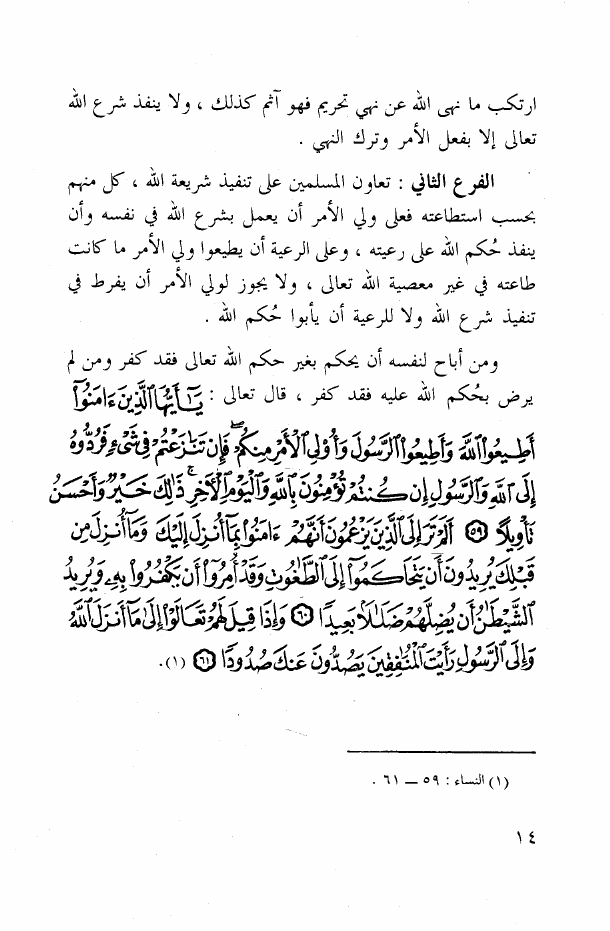 ارتكب ما نهى الله عن نهي تحريم فهو آثم كذلك ، ولا ينفذ شرع الله
تعالى إلا بفعل الأمر وترك النهي .
الفرع الثاني : تعاون المسلمين على تنفيذ شريعة الله ، كل منهم
بحسب استطاعته فعلى ولي الأمر أن يعمل بشرع الله في نفسه وأن
ينفذ حُكم الله على رعيته ، وعلى الرعية أن يطيعوا ولي الأمر ما كانت
طاعته في غير معصية الله تعالى ، ولا يجوز لولي الأمر أن يفرط في
تنفيذ شرع الله ولا للرعية أن يأبوا حُكم الله .
ومن أباح لنفسه أن يحكم بغير حكم الله تعالى فقد كفر ومن لم
يرض بحُكم الله عليه فقد كفر ، قال تعالى : يَٰٓأَيُّهَا ٱلَّذِينَ ءَامَنُوٓا۟
أَطِيعُوا۟ ٱللَّهَ وَأَطِيعُوا۟ ٱلرَّسُولَ وَأُو۟لِى ٱلْأَمْرِ مِنكُمْ ۖ فَإِن تَنَٰزَعْتُمْ فِى شَىْءٍ فَرُدُّوهُ
إِلَى ٱللَّهِ وَٱلرَّسُولِ إِن كُنتُمْ تُؤْمِنُونَ بِٱللَّهِ وَٱلْيَوْمِ ٱلْءَاخِرِ ۚ ذَٰلِكَ خَيْرٌ وَأَحْسَنُ
تَأْوِيلًا ٥٩ أَلَمْ تَرَ إِلَى ٱلَّذِينَ يَزْعُمُونَ أَنَّهُمْ ءَامَنُوا۟ بِمَآ أُنزِلَ إِلَيْكَ وَمَآ أُنزِلَ مِن
قَبْلِكَ يُرِيدُونَ أَن يَتَحَاكَمُوٓا۟ إِلَى ٱلطَّٰغُوتِ وَقَدْ أُمِرُوٓا۟ أَن يَكْفُرُوا۟ بِهِۦ وَيُرِيدُ
ٱلشَّيْطَٰنُ أَن يُضِلَّهُمْ ضَلَٰلًۢا بَعِيدًا ٦٠ وَإِذَا قِيلَ لَهُمْ تَعَالَوْا۟ إِلَىٰ مَآ أَنزَلَ ٱللَّهُ
وَإِلَى ٱلرَّسُولِ رَأَيْتَ ٱلْمُنَٰفِقِينَ يَصُدُّونَ عَنكَ صُدُودًا ٦١ (١).
(١) النساء : ٥٩ – ٦١ .
١٤